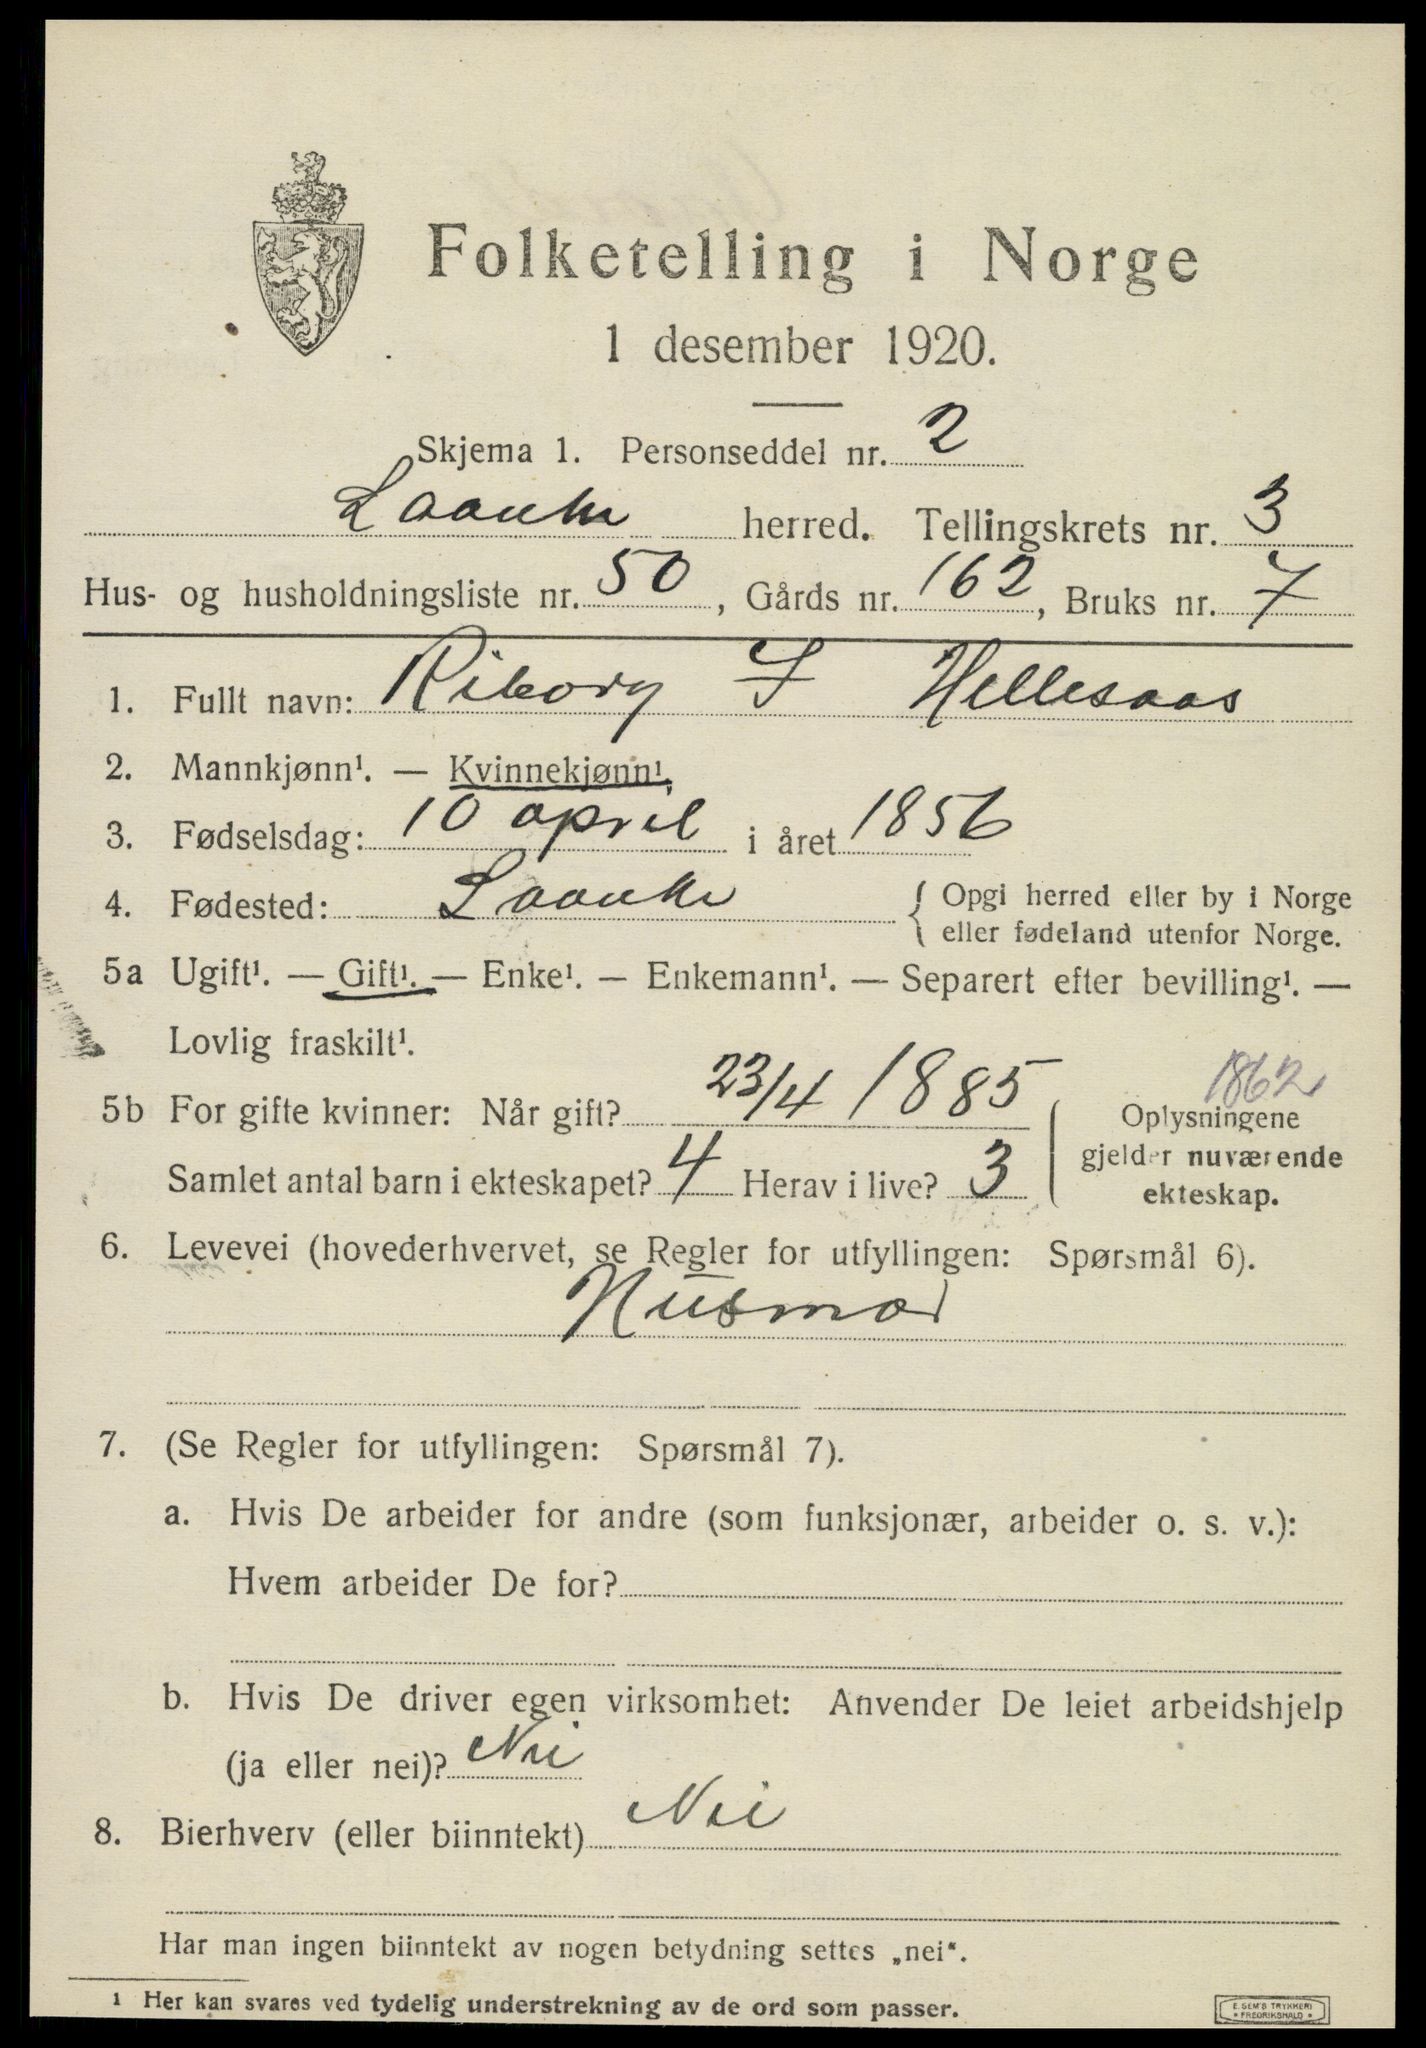 Folketelling i Norge
1 desember 1920.
Skjema 1. Personseddel nr. 2
Laanke herred. Tellingskrets nr. 3
Hus- og husholdningsliste nr. 50, Gårds nr. 162, Bruks nr. 7
1. Fullt navn: Riborg I Hellesaas
2. Mannkjønn¹. — Kvinnekjønn¹.
3. Fødselsdag: 10 april i året 1856
4. Fødested: Laanke { Opgi herred eller by i Norge
eller fødeland utenfor Norge.
5a Ugift¹. — Gift¹. — Enke¹. — Enkemann¹. — Separert efter bevilling¹. —
Lovlig fraskilt¹.
1862
5b For gifte kvinner: Når gift? 23/4 1885 Oplysningene
Samlet antal barn i ekteskapet? 4 Herav i live? 3 gjelder nuværende
ekteskap.
6. Levevei (hovederhvervet, se Regler for utfyllingen: Spørsmål 6).
Husmor
7. (Se Regler for utfyllingen: Spørsmål 7).
a. Hvis De arbeider for andre (som funksjonær, arbeider o. s. v.):
Hvem arbeider De for?
b. Hvis De driver egen virksomhet: Anvender De leiet arbeidshjelp
(ja eller nei)? Nei
8. Bierhverv (eller biinntekt) Nei
Har man ingen biinntekt av nogen betydning settes „nei“.
1 Her kan svares ved tydelig understrekning av de ord som passer.
E. SEM'S TRYKKERI
• FREDRIKSHALD •